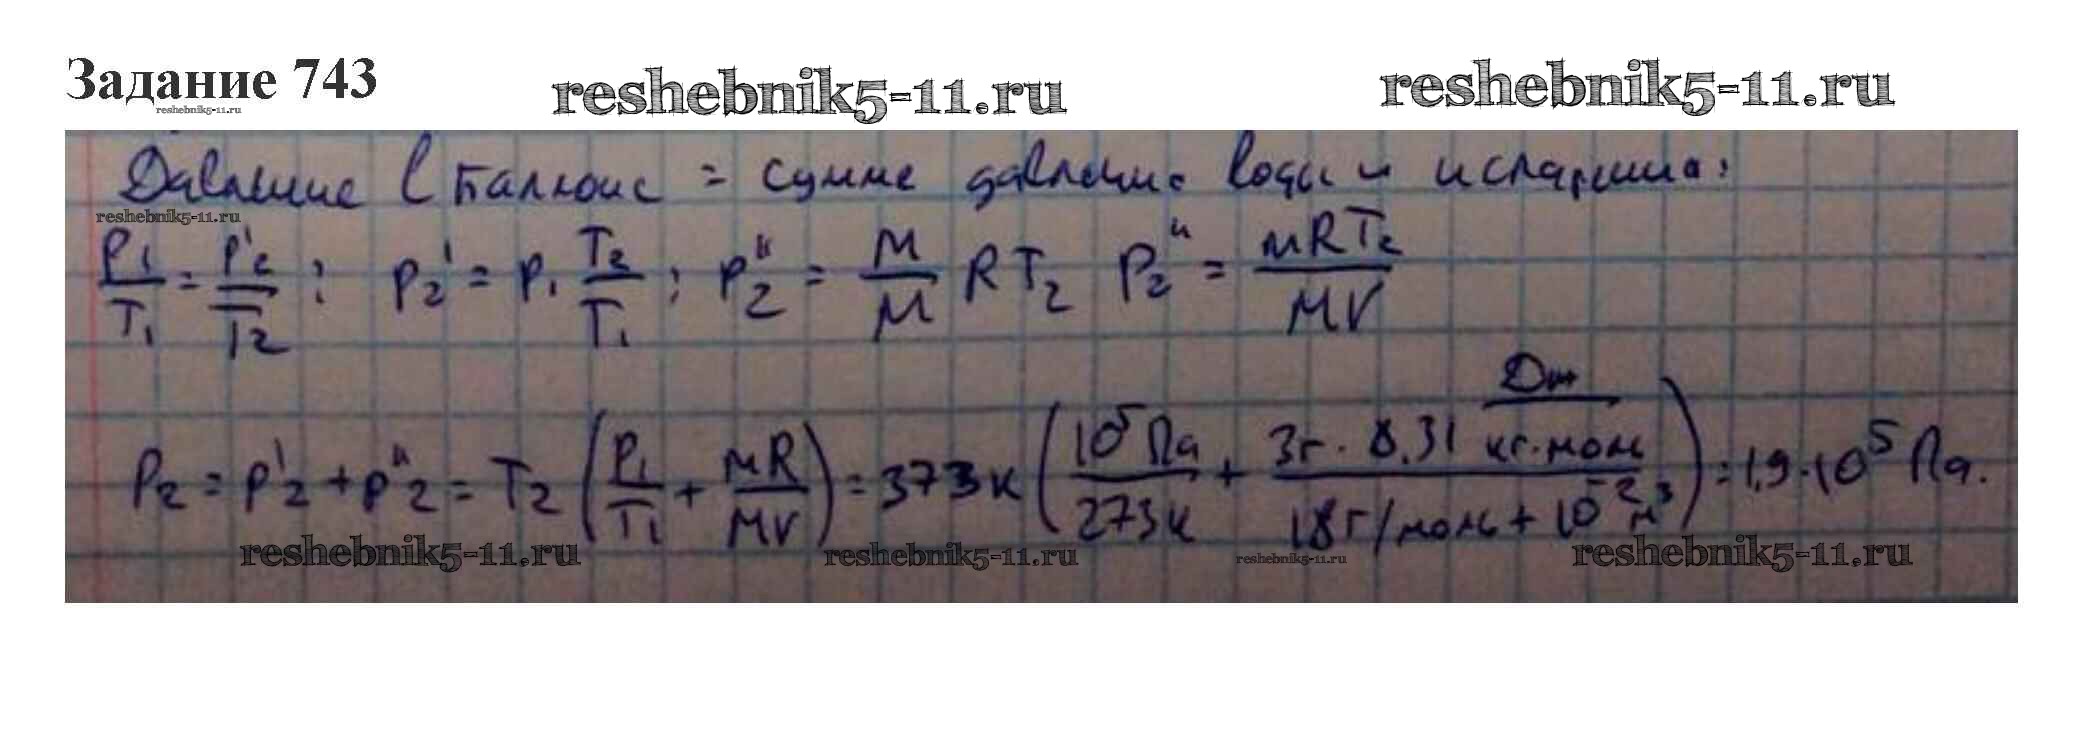 Задание 743
reshebnik5-11.ru
reshebnik5-11.ru
reshebnik5-11.ru
Давление в баллоне = сумме давлен. воды и испарения:
reshebnik5-11.ru
P₁/T₁ = P₂'/T₂ ; P₂' = P₁ T₂/T₁ ; P₂'' = m/M RT₂ P₂'' = mRT₂/MV
P₂ = P₂' + P₂'' = T₂ (P₁/T₁ + mR/MV) = 373К (10⁵Па/273К + 3г · 8,31 Дж/кг·моль / 18г/моль + 10⁻² м³) = 1,9·10⁵ Па.
reshebnik5-11.ru
reshebnik5-11.ru
reshebnik5-11.ru
reshebnik5-11.ru